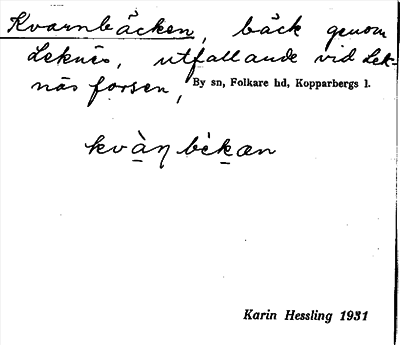 Kvarnbäcken, bäck genom
Leknäs, utfallande vid Lek-
näs forsen, By sn, Folkare hd, Kopparbergs l.
kvàn bèkæn
Karin Hessling 1931